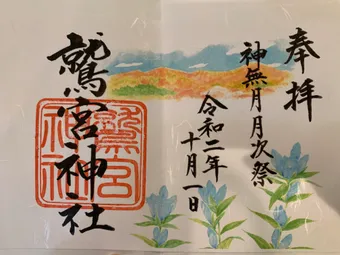 奉拝
神無月月次祭
令和二年
十月一日
鷲宮神社
鷲宮神社